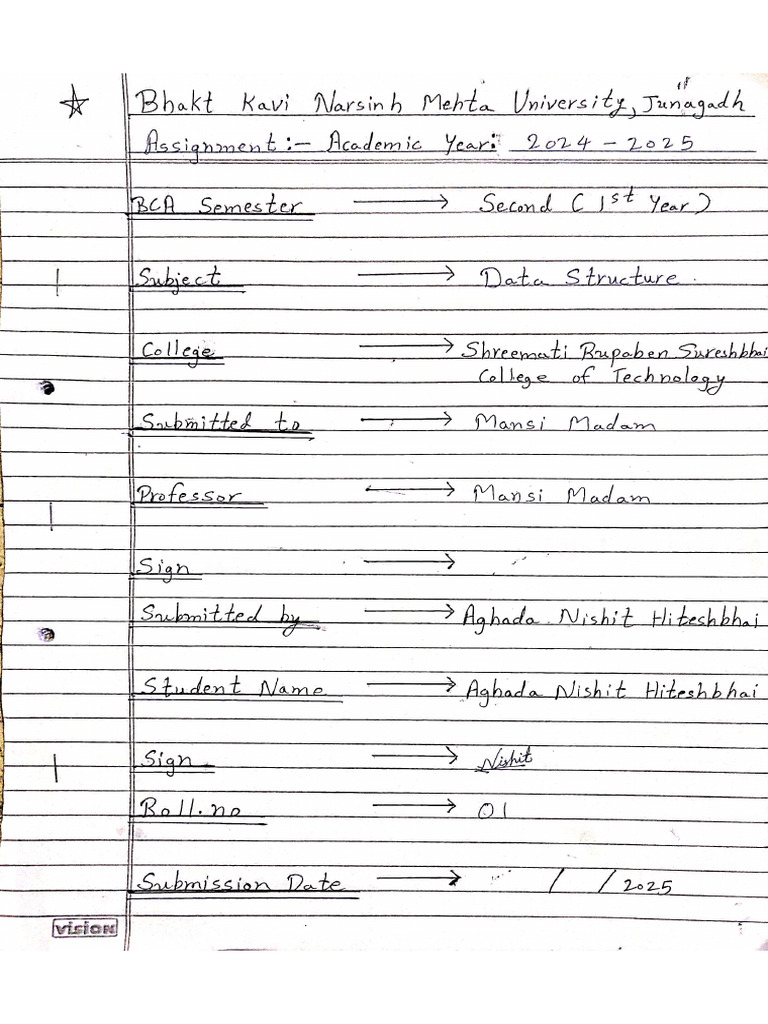 Bhakt Kavi Narsinh Mehta University, Junagadh
Assignment :- Academic Year: 2024 - 2025
BCA Semester → Second ( 1st Year )
Subject → Data Structure.
College → Shreemati Rupaben Sureshbhai
College of Technology
Submitted to → Mansi Madam
Professor → Mansi Madam
Sign →
Submitted by → Aghada Nishit Hiteshbhai
Student Name → Aghada Nishit Hiteshbhai
Sign → Nishit
Roll.no → 01
Submission Date → / / 2025
vision